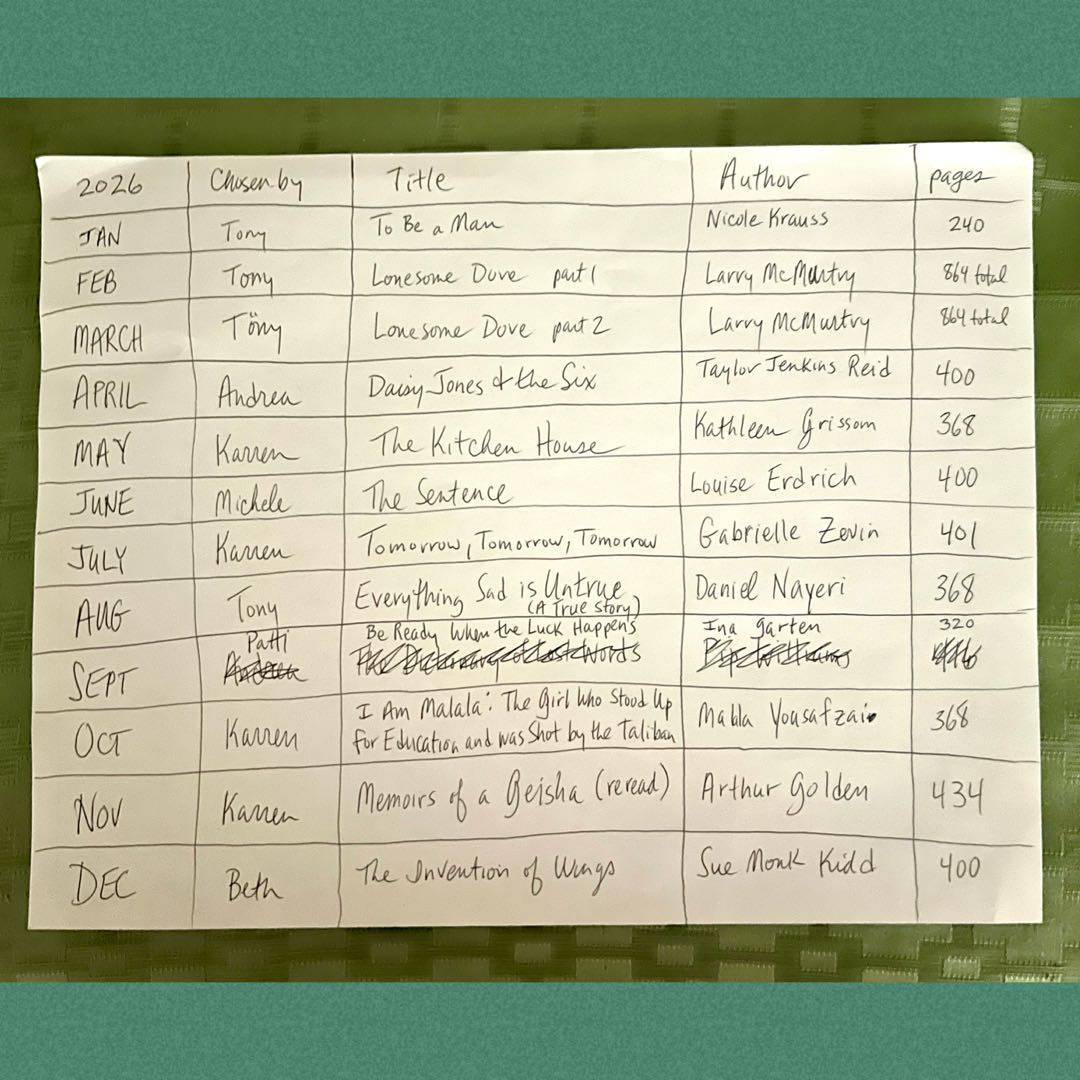 2026 Chosen by Title Author pages
JAN Tony To Be a Man Nicole Krauss 240
FEB Tony Lonesome Dove part 1 Larry McMurtry 864 total
MARCH Töny Lonesome Dove part 2 Larry McMurtry 864 total
APRIL Andrea Daisy Jones & the Six Taylor Jenkins Reid 400
MAY Karren The Kitchen House Kathleen Grissom 368
JUNE Michele The Sentence Louise Erdrich 400
JULY Karren Tomorrow, Tomorrow, Tomorrow Gabrielle Zevin 401
AUG Tony Everything Sad is Untrue Daniel Nayeri 368
(A True Story)
Patti Be Ready When the Luck Happens Ina Garten 320
SEPT Andrea The Dictionary of Lost Words Pip Williams
OCT Karren I Am Malala: The Girl Who Stood Up Malala Yousafzai 368
for Education and was Shot by the Taliban
NOV Karren Memoirs of a Geisha (reread) Arthur Golden 434
DEC Beth The Invention of Wings Sue Monk Kidd 400